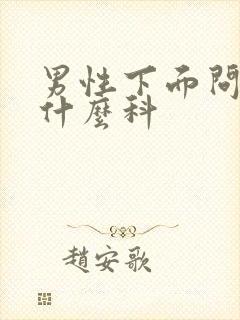 男性下而問
什麼科
趙安歌